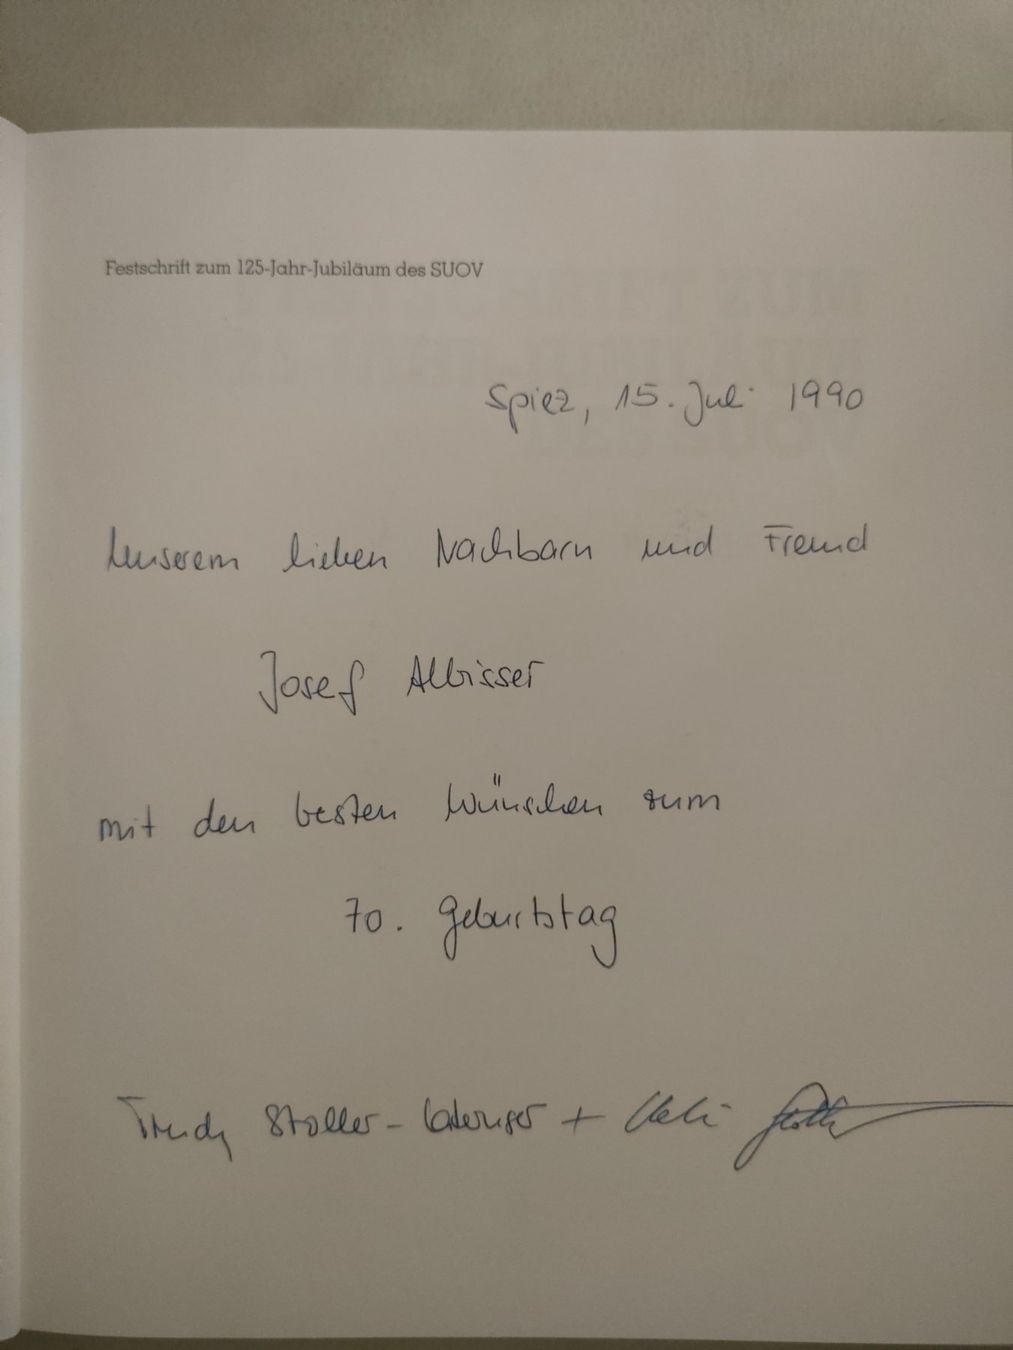 Festschrift zum 125-Jahr-Jubiläum des SUOV
Spiez, 15. Juli 1990
Unserem lieben Nachbarn und Freund
Josef Albisser
mit den besten Wünschen zum
70. Geburtstag
Trudy Stoller- + Ueli